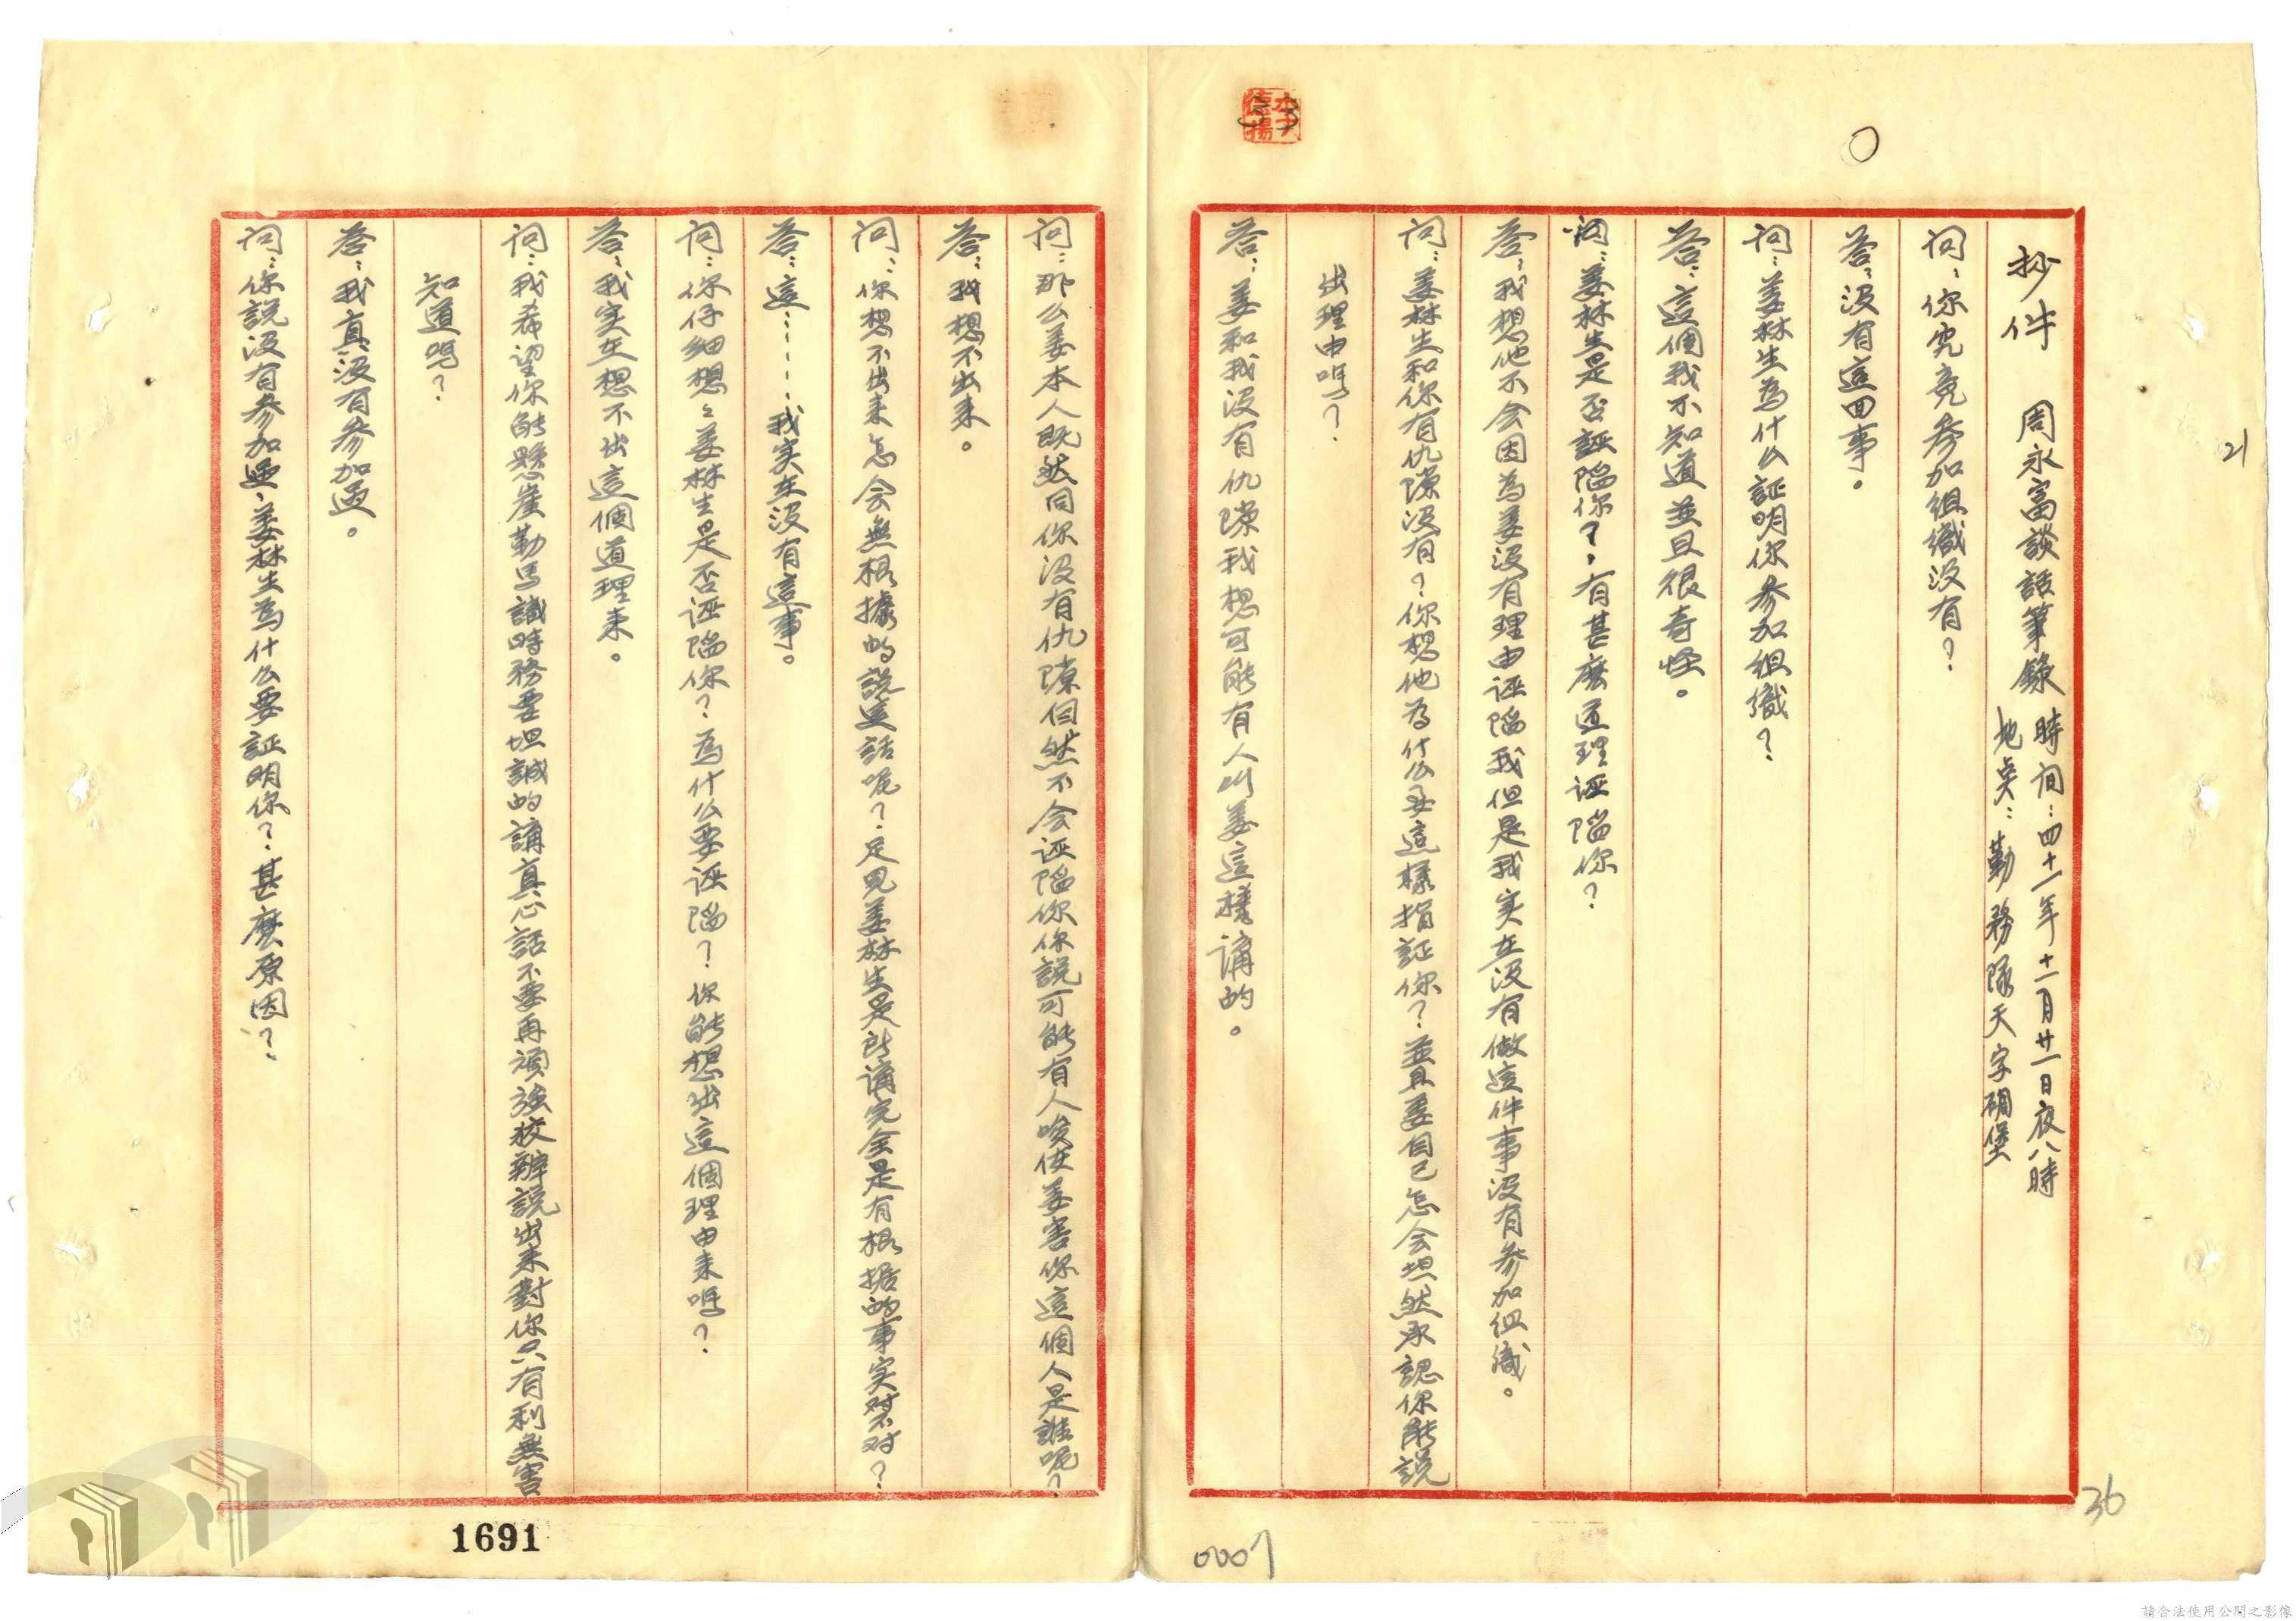 抄件　周永富談話筆錄
時间：四十一年十一月廿一日夜八時
地奌：勤務隊天字碉堡
问：你究竟參加組織没有？
答：没有這回事。
问：姜林生為什么証明你參加組織？
答：這個我不知道並且很奇怪。
问：姜林生是否誣陷你？有甚麽道理誣陷你？
答：我想他不会因為姜没有理由诬陷我但是我实在没有做這件事没有參加組織。
问：姜林生和你有仇隙没有？你想他為什么要這樣指証你？並且姜自己怎会坦然承認你能說
出理由嗎？
答：姜和我没有仇隙我想可能有人叫姜這樣講的。
问：那么姜本人既然同你没有仇隙自然不会诬陷你你說可能有人唆使姜害你這個人是誰呢？
答：我想不出来。
问：你想不出来怎会無根據的說這話呢？足見姜林生是所講完全是有根据的事实对不对？
答：這……我实在没有這事。
问：你仔细想々姜林生是否诬陷你？為什么要诬陷？你能想出這個理由来嗎？
答：我实在想不出這個道理来。
问：我希望你能懸崖勒馬識時務要坦誠的講真心話不要再頑強狡辨說出来對你只有利無害
知道嗎？
答：我真没有參加過。
问：你說没有參加過，姜林生為什么要証明你？甚麽原因？
李德揚
33
21
36
0007
1691
請合法使用公開之影像